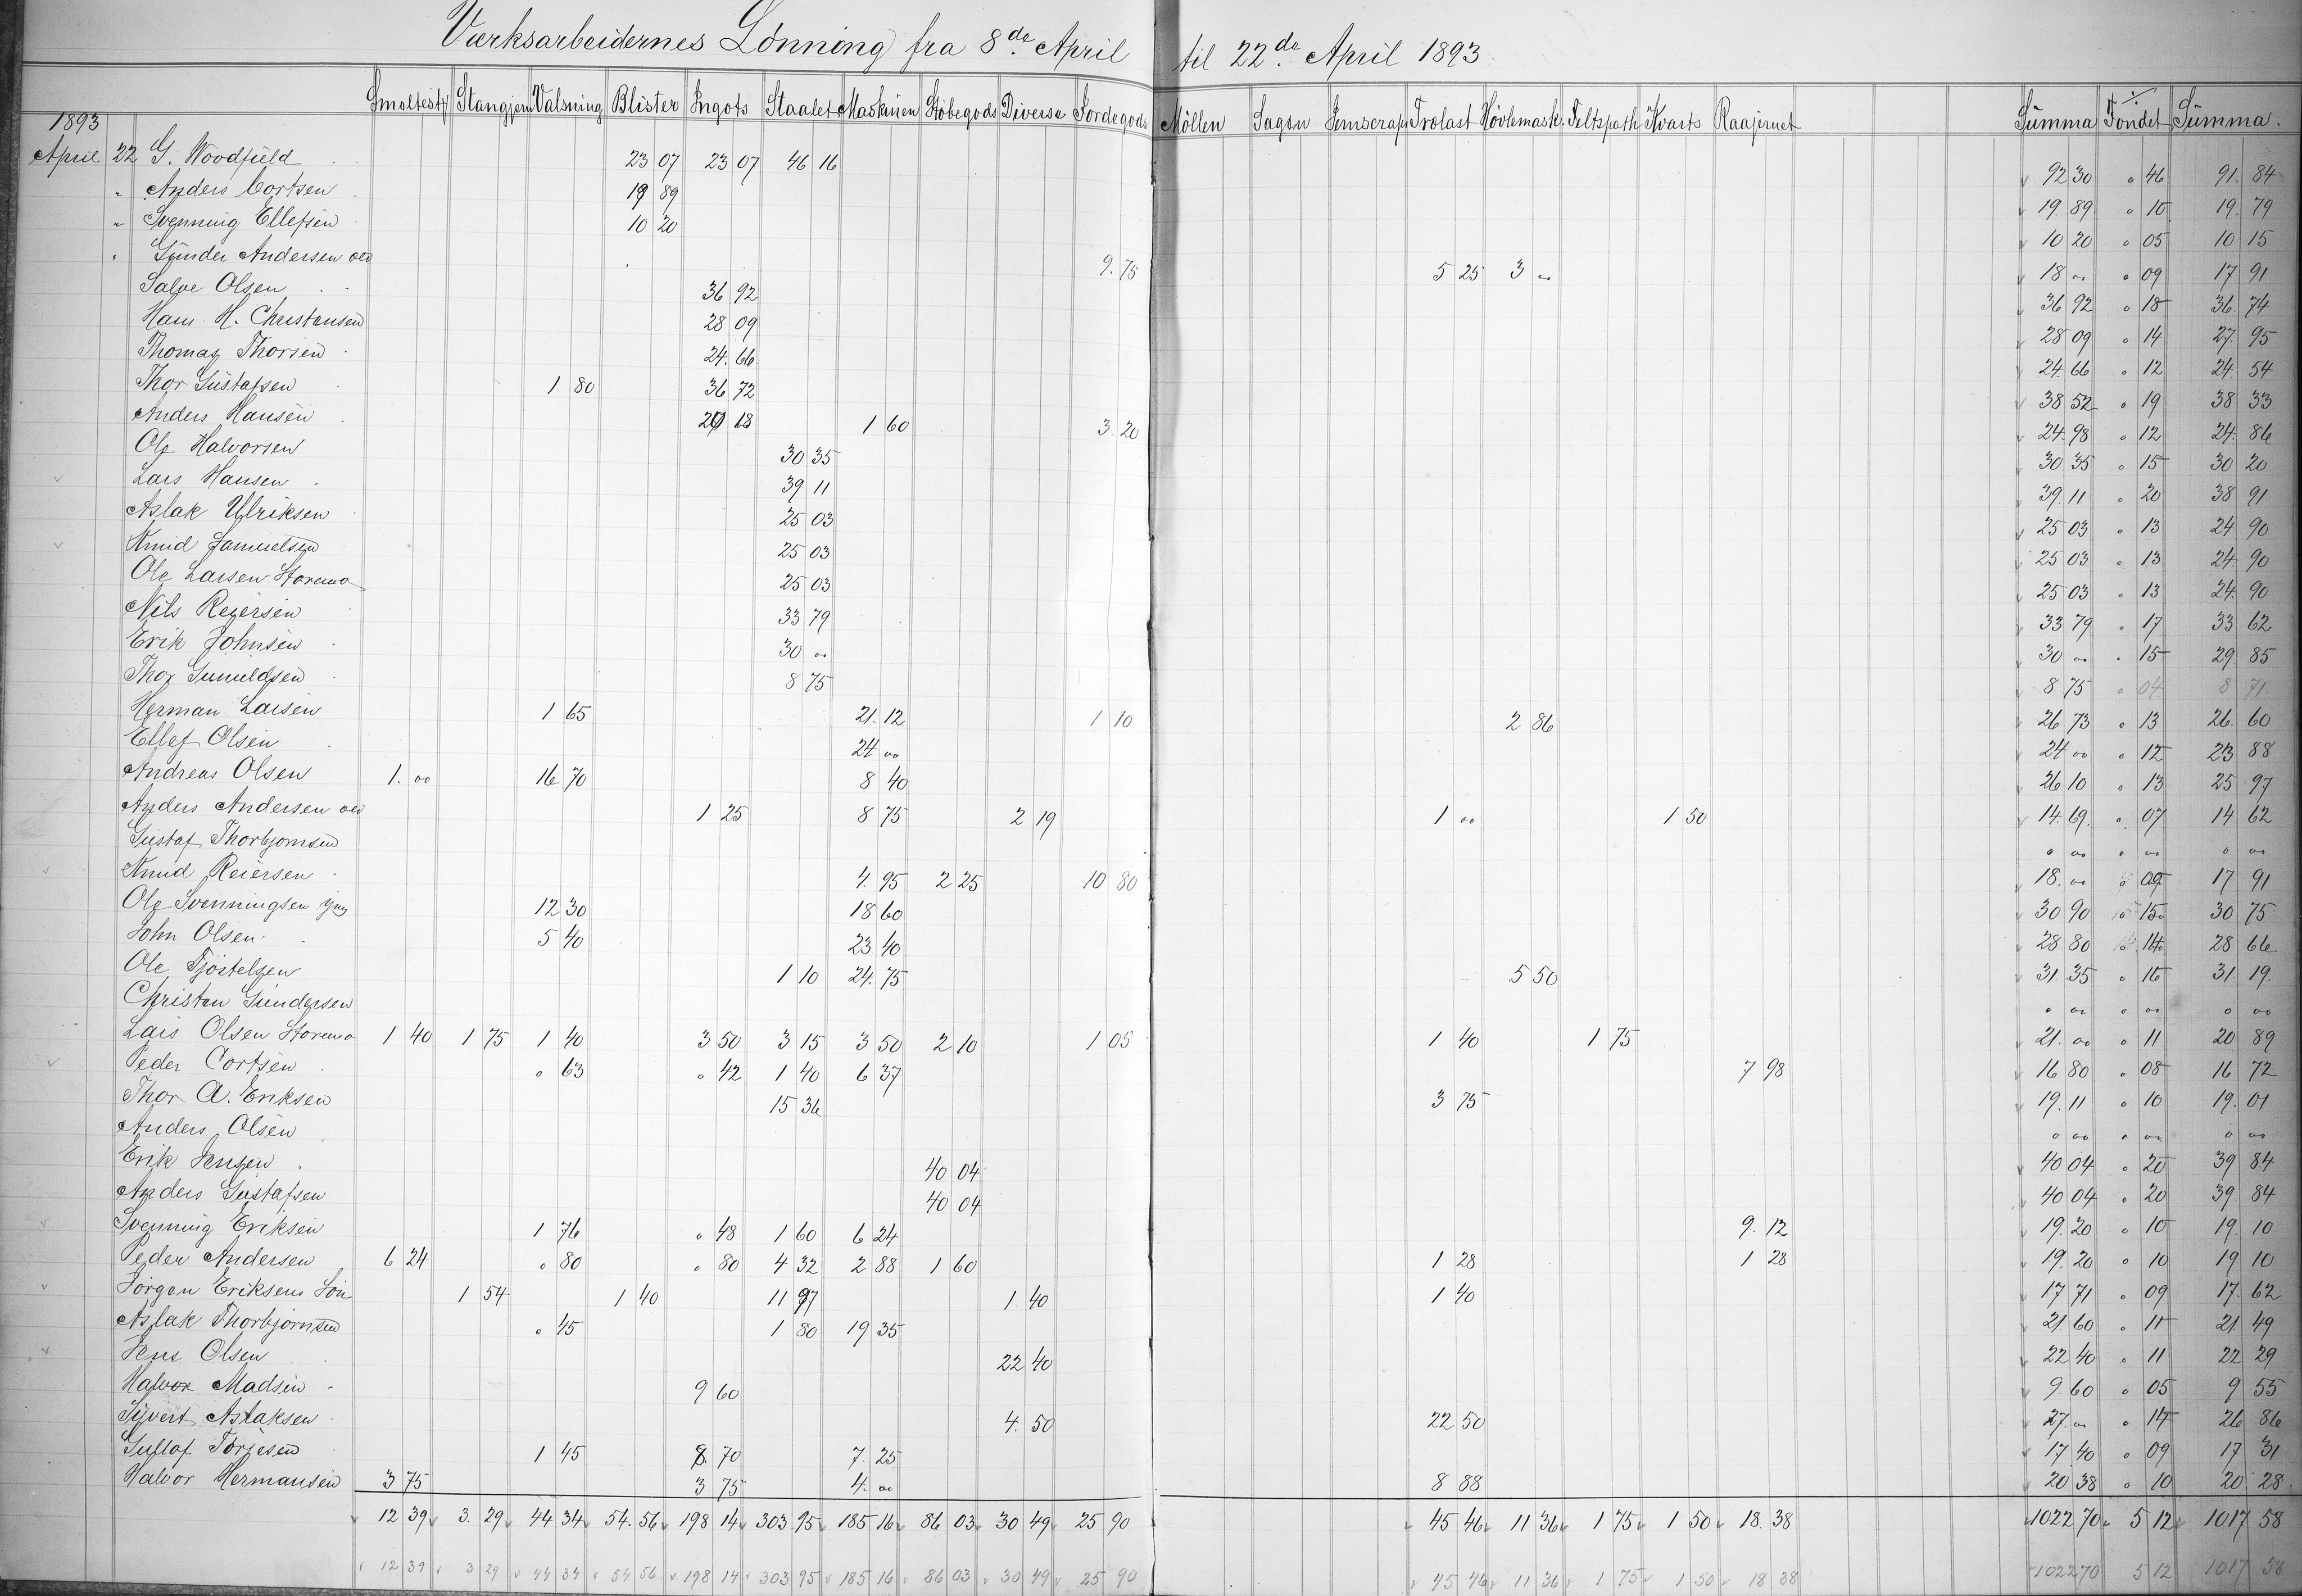 Værksarbeidernes Lønning fra 8de April til 22de April 1893
Smeltest. Stangjern Valsning Blister Ingots Staalet Maskinen Støbegods Diverse Fordegods Møllen Sagen Jernscrap Trælast Høvlemask. Feltspath Kvarts Raajernet Summa Fondet Summa.
1893
April 22 G. Woodfield 23 07 23 07 46 16 92 30 " 46 91. 84
" Anders Cortsen 19 89 19. 89 " 10 19. 79
" Svenning Ellefsen 10 20 10 20 " 05 10 15
" Gunder Andersen 9. 75 5 25 3 " 18 " " 09 17 91
Salve Olsen 36 92 36 92 " 18 36. 74
Hans H. Christensen 28 09 28 09 " 14 27. 95
Thomas Thorsen 24. 66 24. 66 " 12 24 54
Thor Gustafsen 1 80 36 72 38 52 " 19 38 33
Anders Hansen 20 18 1 60 3. 20 24. 98 " 12 24. 86
Ole Halvorsen 30 35 30 35 " 15 30 20
Lars Hansen 39 11 39. 11 " 20 38 91
Aslak Ulriksen 25 03 25 03 " 13 24 90
Knud Samuelsen 25 03 25 03 " 13 24 90
Ole Larsen Storemo 25 03 25 03 " 13 24 90
Nils Reiersen 33 79 33 79 " 17 33 62
Erik Johnsen 30 " 30 " " 15 29 85
Thor Gunuldsen 8 75 8 75 " 04 8 71
Herman Larsen 1 65 21. 12 1 10 2 86 26 73 " 13 26. 60
Ellef Olsen 24 " 24 " " 12 23 88
Andreas Olsen 1. " 16 70 8 40 26 10 " 13 25 97
Anders Andersen 1 25 8 75 2 19 1 " 1 50 14. 69. " 07 14 62
Gustaf Thorbjornsen " " " " " "
Knud Reiersen 4. 95 2 25 10 80 18. " " 09 17 91
Ole Svenningsen yng 12 30 18 60 30 90 " 15 30 75
John Olsen 5 40 23 40 28 80 " 14 28 66
Ole Tjøstelsen 1 10 24. 75 5 50 31. 35 " 16 31 19.
Christen Gundersen " " " " " "
Lars Olsen Storemo 1 40 1 75 1 40 3 50 3 15 3 50 2 10 1 05 1 40 1 75 21. " " 11 20 89
Peder Cortsen " 63 " 42 1 40 6 37 7 98 16 80 " 08 16 72
Thor A. Eriksen 15 36 3 75 19. 11 " 10 19. 01
Anders Olsen " " " " " "
Erik Jensen 40 04 40 04 " 20 39 84
Anders Gustafsen 40 04 40 04 " 20 39 84
Svenning Eriksen 1 76 " 48 1 60 6 24 9. 12 19. 20 " 10 19. 10
Peder Andersen 6 24 " 80 " 80 4 32 2 88 1 60 1 28 1 28 19. 20 " 10 19 10
Jørgen Eriksens Søn 1 54 1 40 11 97 1 40 1 40 17 71 " 09 17. 62
Aslak Thorbjornsen " 45 1 80 19 35 21. 60 " 11 21 49
Jens Olsen 22 40 22 40 " 11 22 29
Halvor Madsen 9 60 9. 60 " 05 9 55
Sivert Aslaksen 4. 50 22 50 27 " " 14 26 86
Gustaf Torjesen 1 45 8. 70 7. 25 17. 40 " 09 17 31
Halvor Hermansen 3 75 3 75 4. " 8 88 20 38 " 10 20 28
12 39 3. 29 44 34 54. 56 198 14 303 95 185 16 86 03 30 49 25 90 45 46 11 36 1 75 1 50 18. 38 1022 70 5 12 1017 58
12 39 3 29 44 34 54 56 198 14 303 95 185 16 86 03 30 49 25 90 45 46 11 36 1 75 1 50 18 38 1022 70 5 12 1017 58